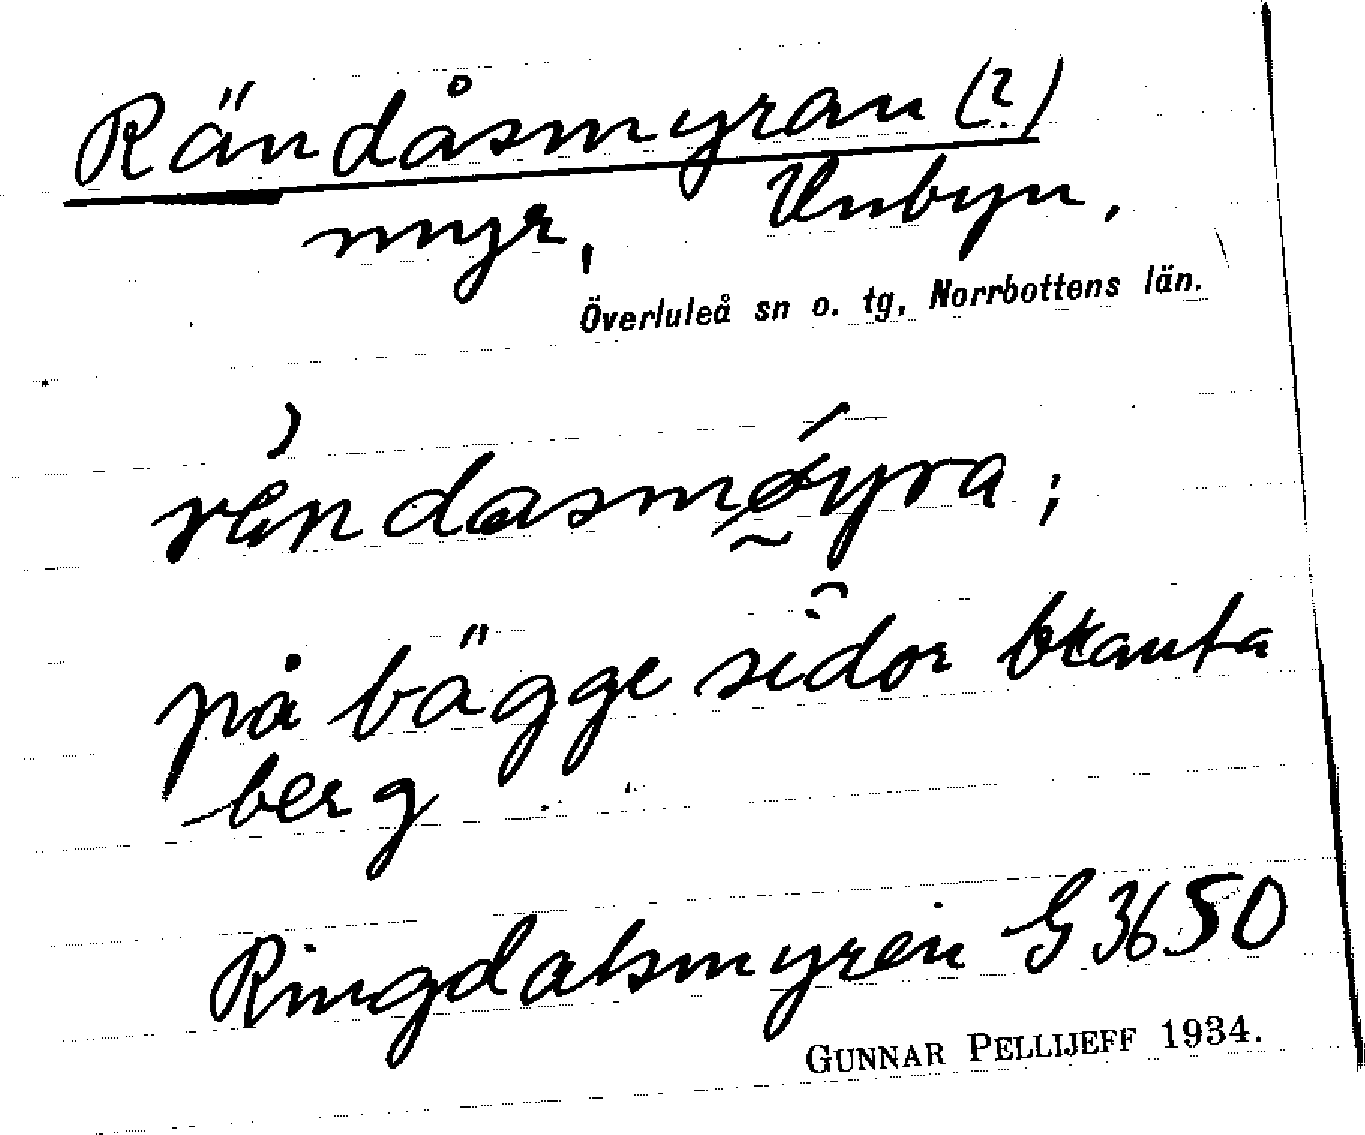 Rändåsmyran (?)
myr, Unbyn,
Överluleå sn o. tg, Norrbottens län.
på bägge sidor branta
berg
Ringdalsmyren G 3650
GUNNAR PELLIJEFF 1934.